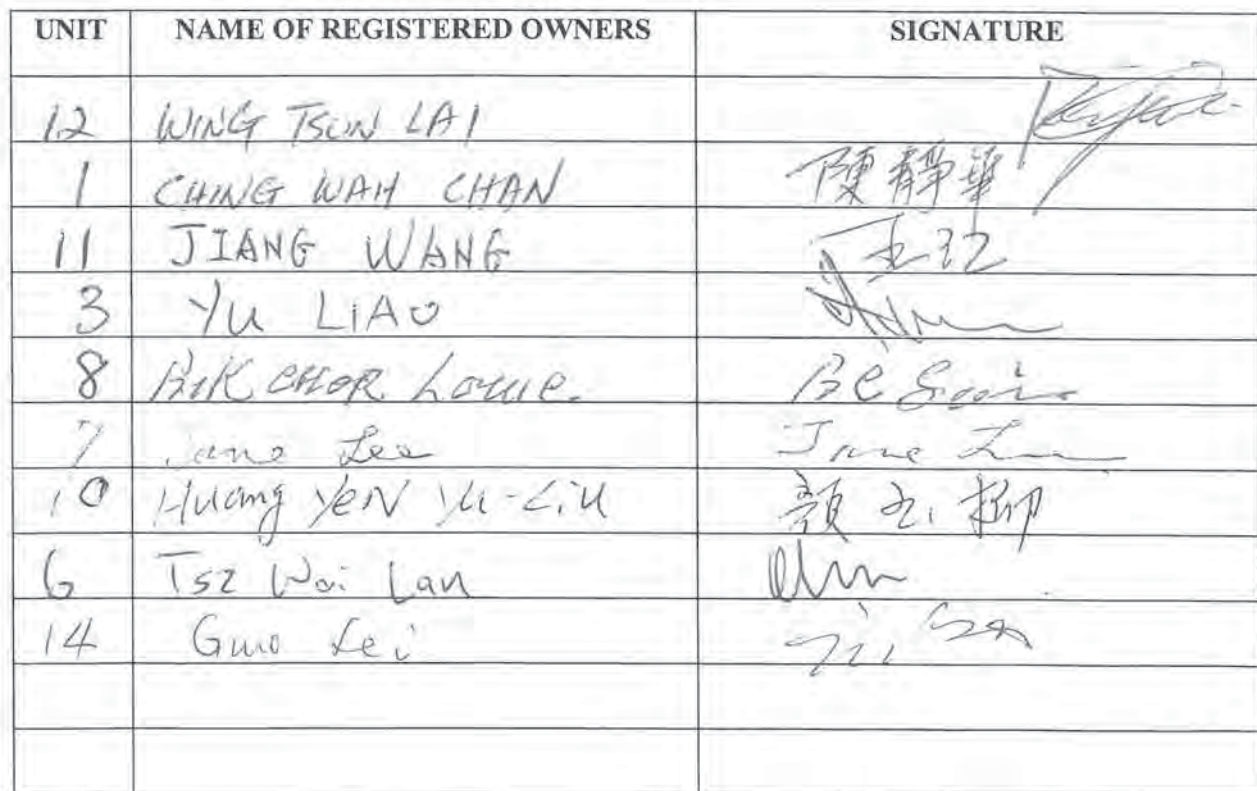 UNIT NAME OF REGISTERED OWNERS SIGNATURE
12 WING TSUN LAI
1 CHING WAH CHAN 陳靜華
11 JIANG WANG 王江
3 YU LIAO
8 BIK CHOR Louie.
7 Jane Lee Jane Lee
10 Huang YEN Yu-Liu 顏玉柳
6 Tsz Wai Lau
14 Guo Lei